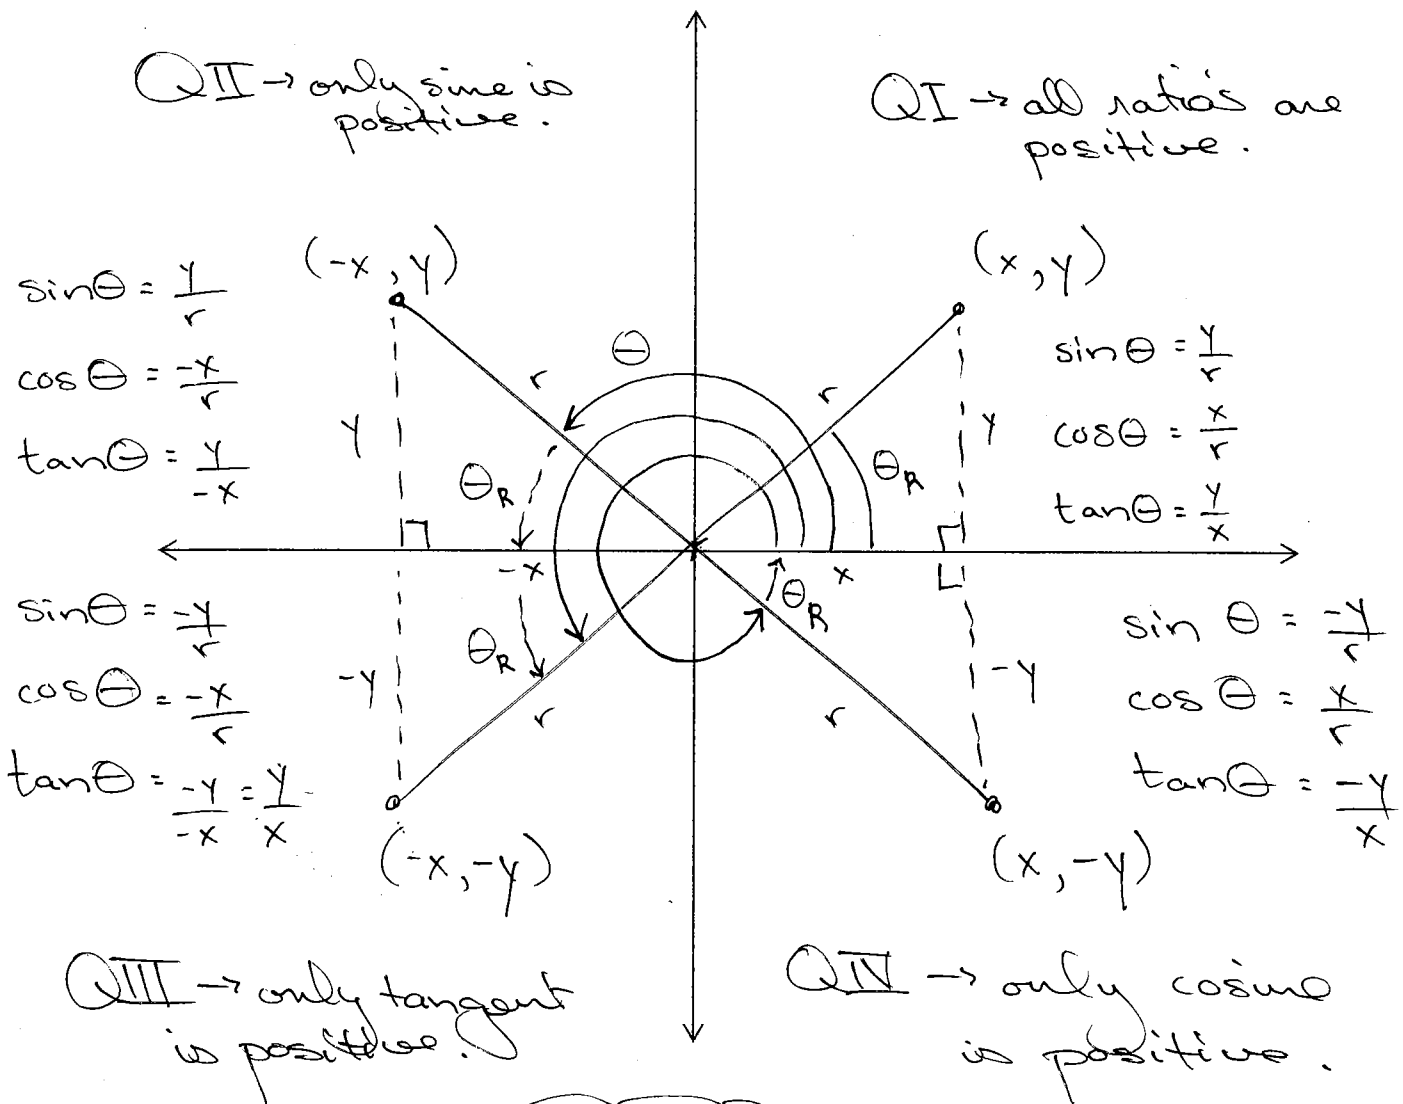 QII → only sine is
positive.
QI → all ratios are
positive.
(-x, y)
(x, y)
sinθ = y/r
cosθ = -x/r
tanθ = y/-x
θ
r
y
θR
r
y
θR
sinθ = y/r
cosθ = x/r
tanθ = y/x
-x
x
sinθ = -y/r
cosθ = -x/r
tanθ = -y/-x = y/x
θR
-y
r
θR
r
-y
sin θ = -y/r
cos θ = x/r
tanθ = -y/x
(-x, -y)
(x, -y)
QIII → only tangent
is positive.
QIV → only cosine
is positive.